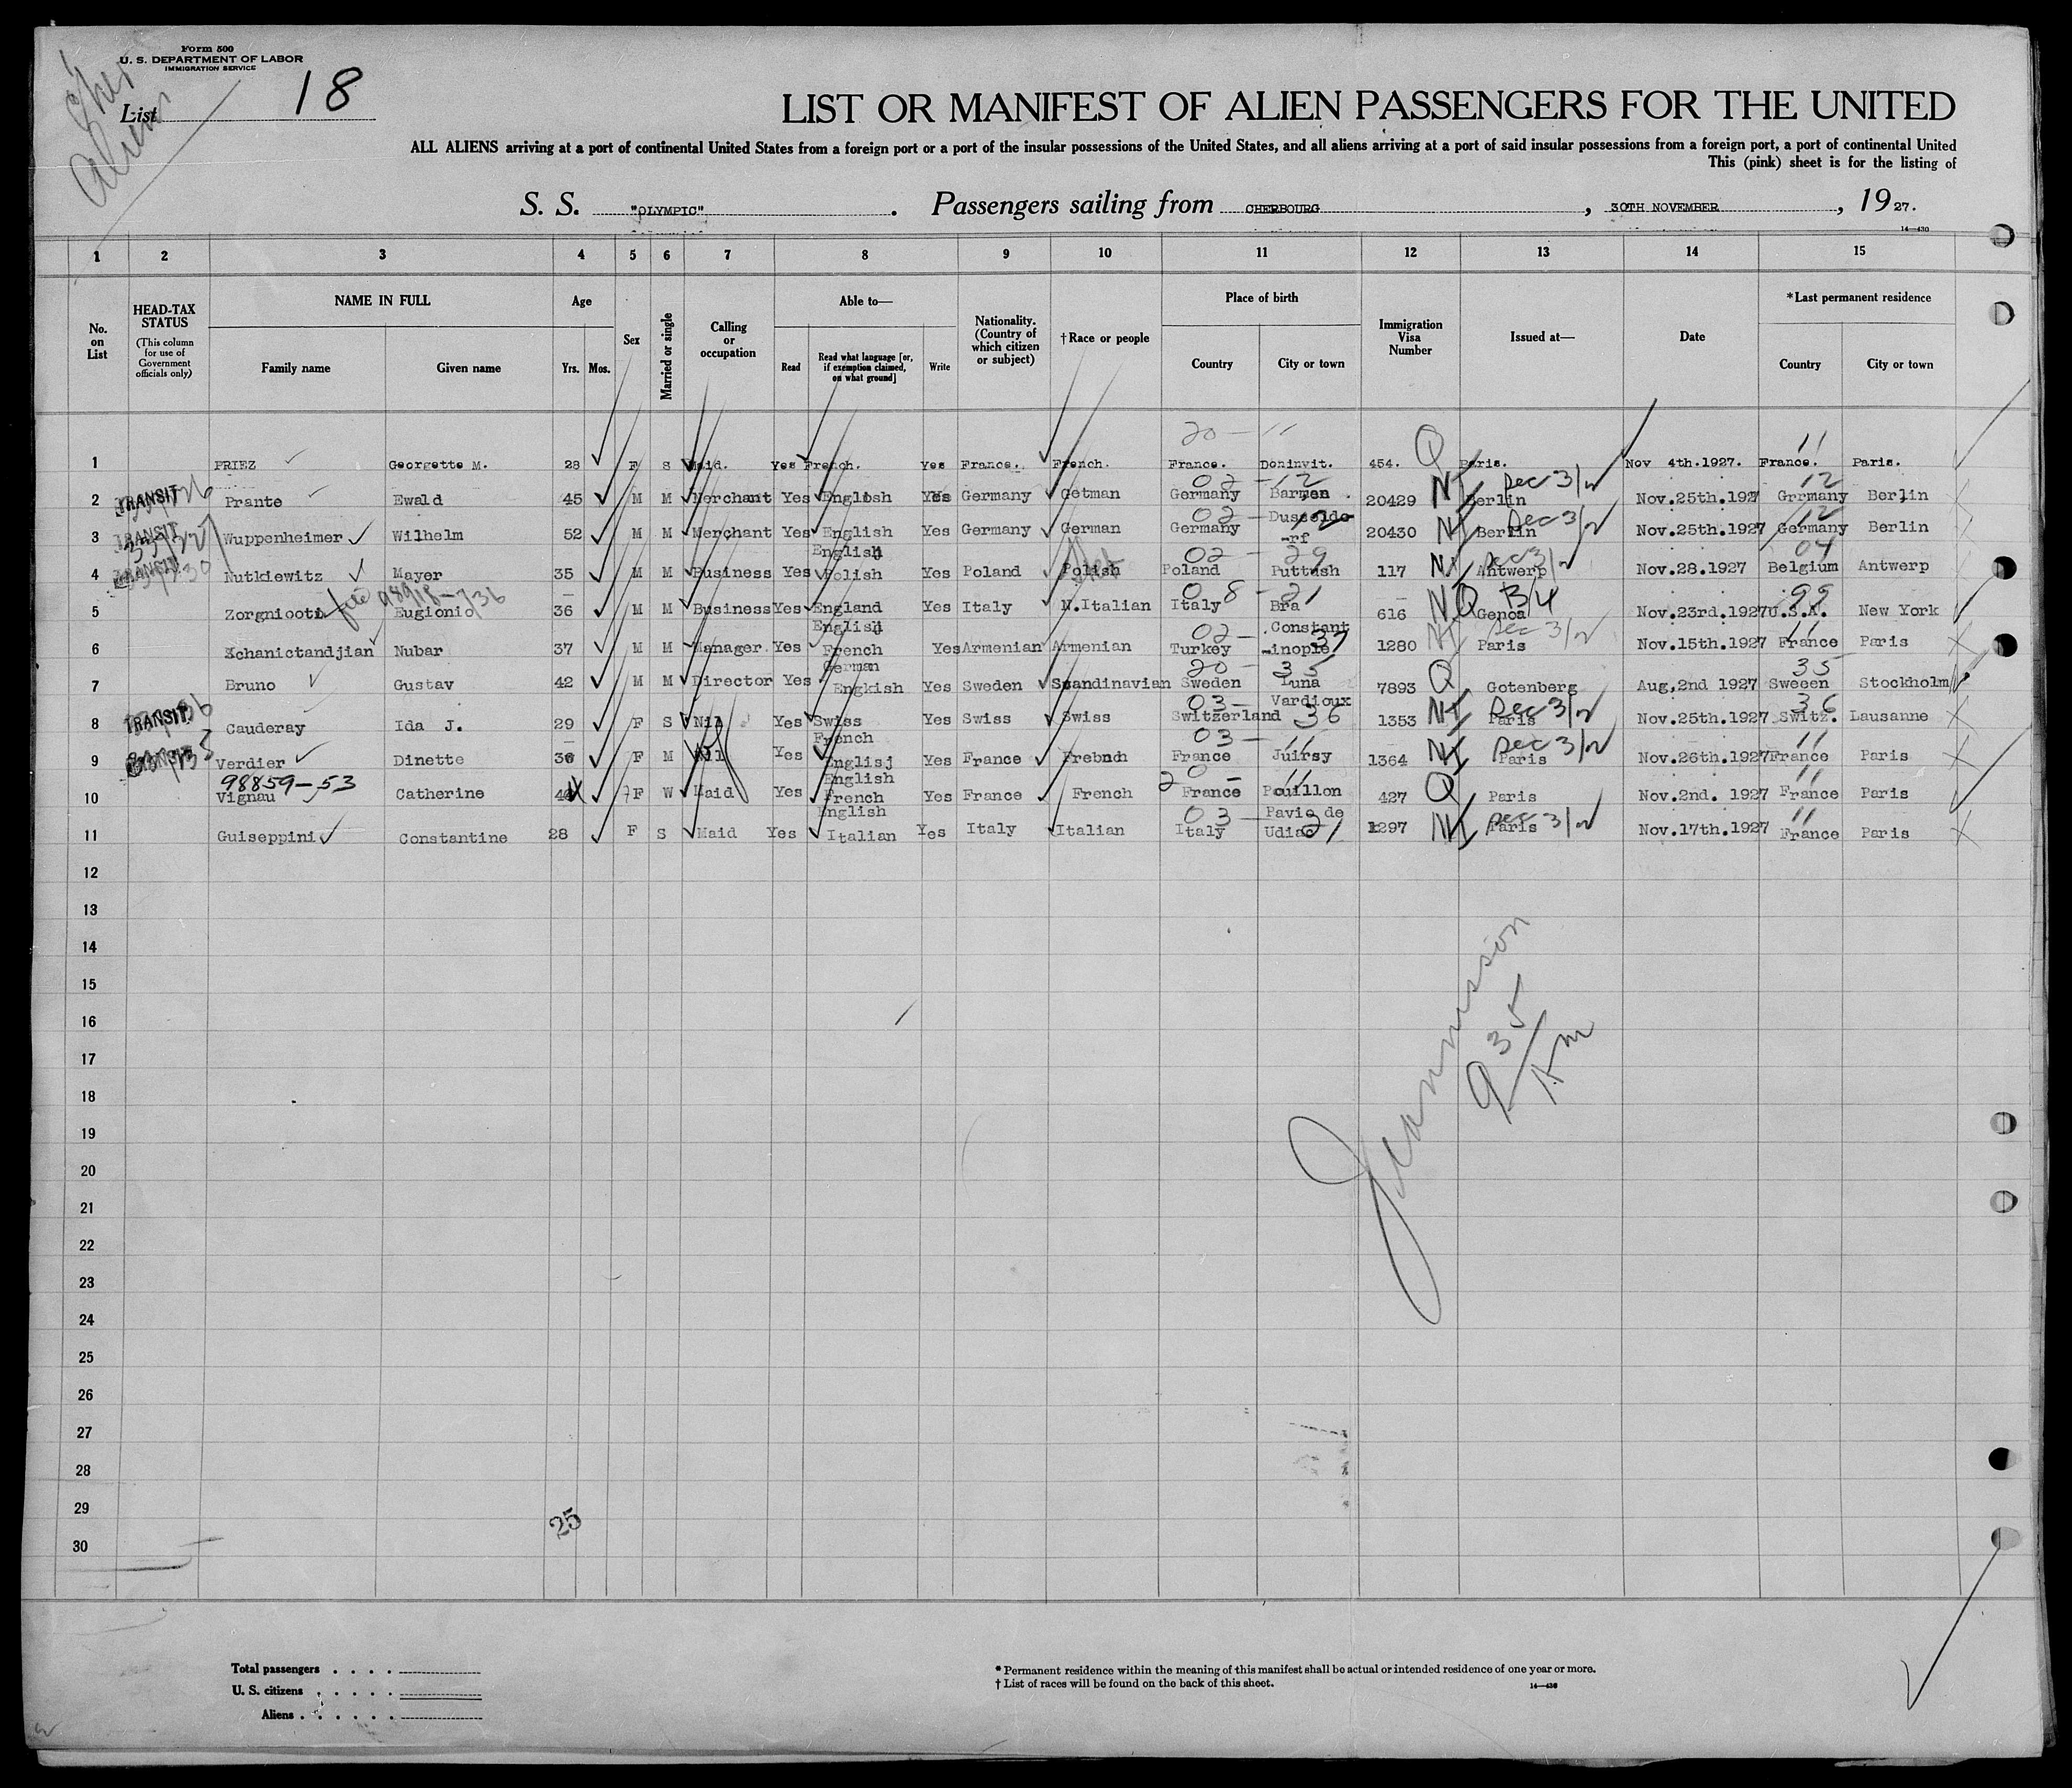 Form 500
U. S. DEPARTMENT OF LABOR
IMMIGRATION SERVICE
List 18
Aliens
LIST OR MANIFEST OF ALIEN PASSENGERS FOR THE UNITED
ALL ALIENS arriving at a port of continental United States from a foreign port or a port of the insular possessions of the United States, and all aliens arriving at a port of said insular possessions from a foreign port, a port of continental United
This (pink) sheet is for the listing of
S. S. "OLYMPIC". Passengers sailing from CHERBOURG, 30TH NOVEMBER, 1927.
14—430
1 2 3 4 5 6 7 8 9 10 11 12 13 14 15
No. on List
HEAD-TAX STATUS
(This column for use of Government officials only)
NAME IN FULL
Family name Given name
Age
Yrs. Mos.
Sex
Married or single
Calling or occupation
Able to—
Read Read what language [or, if exemption claimed, on what ground] Write
Nationality. (Country of which citizen or subject)
†Race or people
Place of birth
Country City or town
Immigration Visa Number
Issued at—
Date
*Last permanent residence
Country City or town
20 — 11 Q 11
1 PRIEZ Georgette M. 28 F S Maid. Yes French. Yes France. French. France. Doninvit. 454. Paris. Nov 4th.1927. France. Paris.
02 — 12 NI Dec 3/2 12
2 TRANSIT Prante Ewald 45 M M Merchant Yes English Yes Germany Getman Germany Barmen. 20429 Berlin Nov.25th.192 Grrmany Berlin
02 — 12 NI Dec 3/2 12
3 TRANSIT Wuppenheimer Wilhelm 52 M M Merchant Yes English Yes Germany German Germany Dusseldo-rf 20430 Berlin Nov.25th.1927 Germany Berlin
02 — 29 NI Dec 3/2 04
4 TRANSIT Nutkiewitz Mayer 35 M M Business Yes English Polish Yes Poland Polish Poland Puttush 117 Antwerp Nov.28.1927 Belgium Antwerp
98918-736 08 — 21 NQ 3/4 99
5 Zorgniooti Eugionio 36 M M Business Yes England Yes Italy N.Italian Italy Bra 616 Genoa Nov.23rd.1927 U.S.A. New York
02 — 37 NI Dec 3/2 11
6 Xchanictandjian Nubar 37 M M Manager Yes English French Yes Armenian Armenian Turkey Constant-inople 1280 Paris Nov.15th.1927 France Paris
20 — 35 Q 35
7 Bruno Gustav 42 M M Director Yes German Engkish Yes Sweden Scandinavian Sweden Luna 7893 Gotenberg Aug,2nd 1927 Sweeen Stockholm
03 — 36 NI Dec 3/2 36
8 TRANSIT Cauderay Ida J. 29 F S Nil Yes Swiss Yes Swiss Swiss Switzerland Vardioux 1353 Paris Nov.25th.1927 Switz. Lausanne
03 — 11 NI Dec 3/2 11
9 TRANSIT Verdier Dinette 36 F M Nil Yes French Englisj Yes France Frebnch France Juirsy 1364 Paris Nov.26th.1927 France Paris
98859-53 20 — 11 Q 11
10 Vignau Catherine F W Maid Yes English French Yes France French France Pouillon 427 Paris Nov.2nd. 1927 France Paris
03 — 21 NI Dec 3/2 11
11 Guiseppini Constantine 28 F S Maid Yes English Italian Yes Italy Italian Italy Pavia de Udiac 1297 Paris Nov.17th.1927 France Paris
12
13
14
15
16
17
18
19
20
21
22
23
24
25
26
27
28
29
30
935
25
Total passengers
U. S. citizens
Aliens
* Permanent residence within the meaning of this manifest shall be actual or intended residence of one year or more.
† List of races will be found on the back of this sheet.
14—430